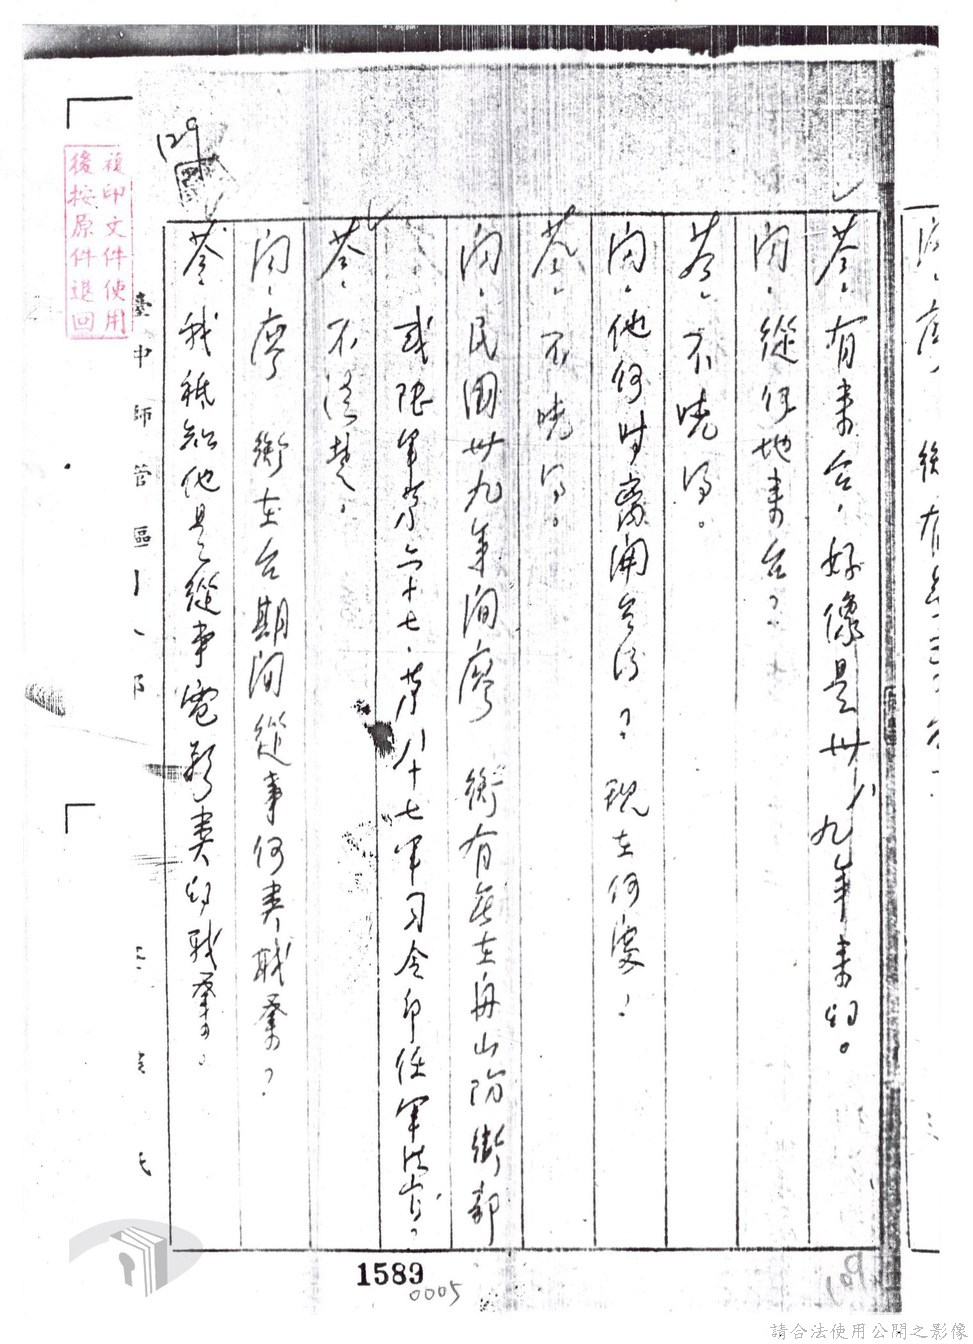 答、有來台,好像是卅八、九年來的。
問、從何地來台?
答、不曉得。
問、他何時離開台灣?現在何處?
答、不曉得。
問、民國卅九年間廖 衡有無在舟山防衛部
或陸軍第六十七、第八十七軍司令部任軍法官?
答、不清楚。
問、廖 衡在台期間從事何業職務?
答、我祗知他是從事電影業的職務。
臺中師管區
複印文件使用
後按原件退回
129
1589
0005
請合法使用公開之影像